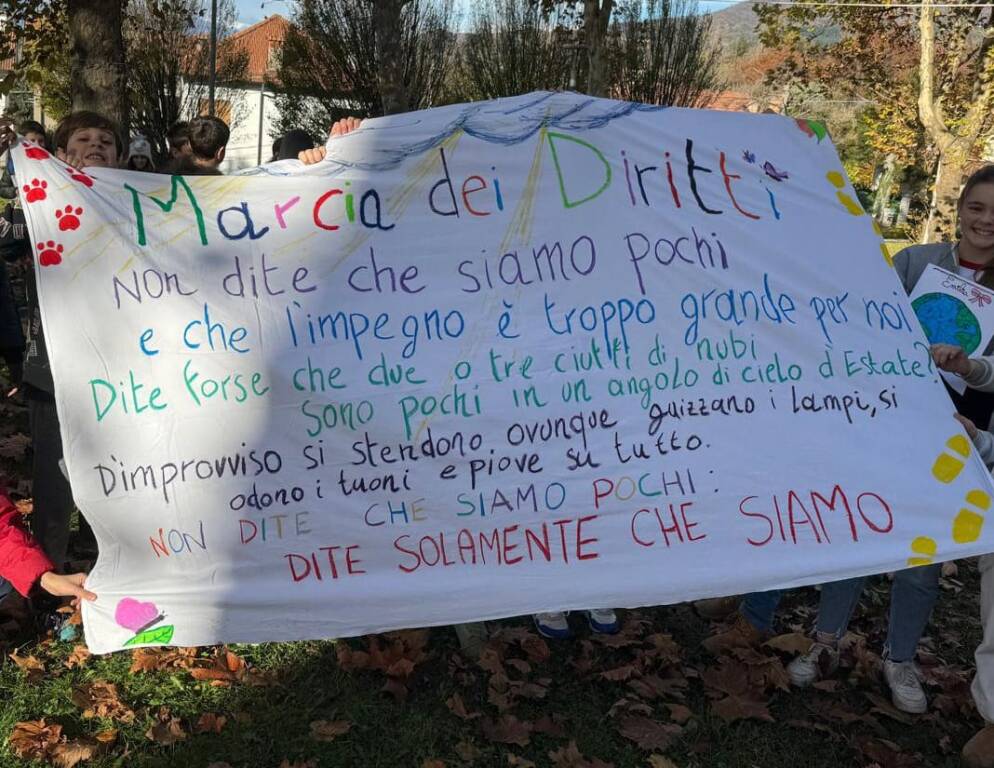 Marcia dei Diritti
NON dite che siamo pochi
e che l'impegno è troppo grande per noi
Dite forse che due o tre ciuffi di nubi
sono pochi in un angolo di cielo d'Estate?
D'improvviso si stendono ovunque guizzano i lampi, si
odono i tuoni e piove su tutto.
NON DITE CHE SIAMO POCHI:
DITE SOLAMENTE CHE SIAMO